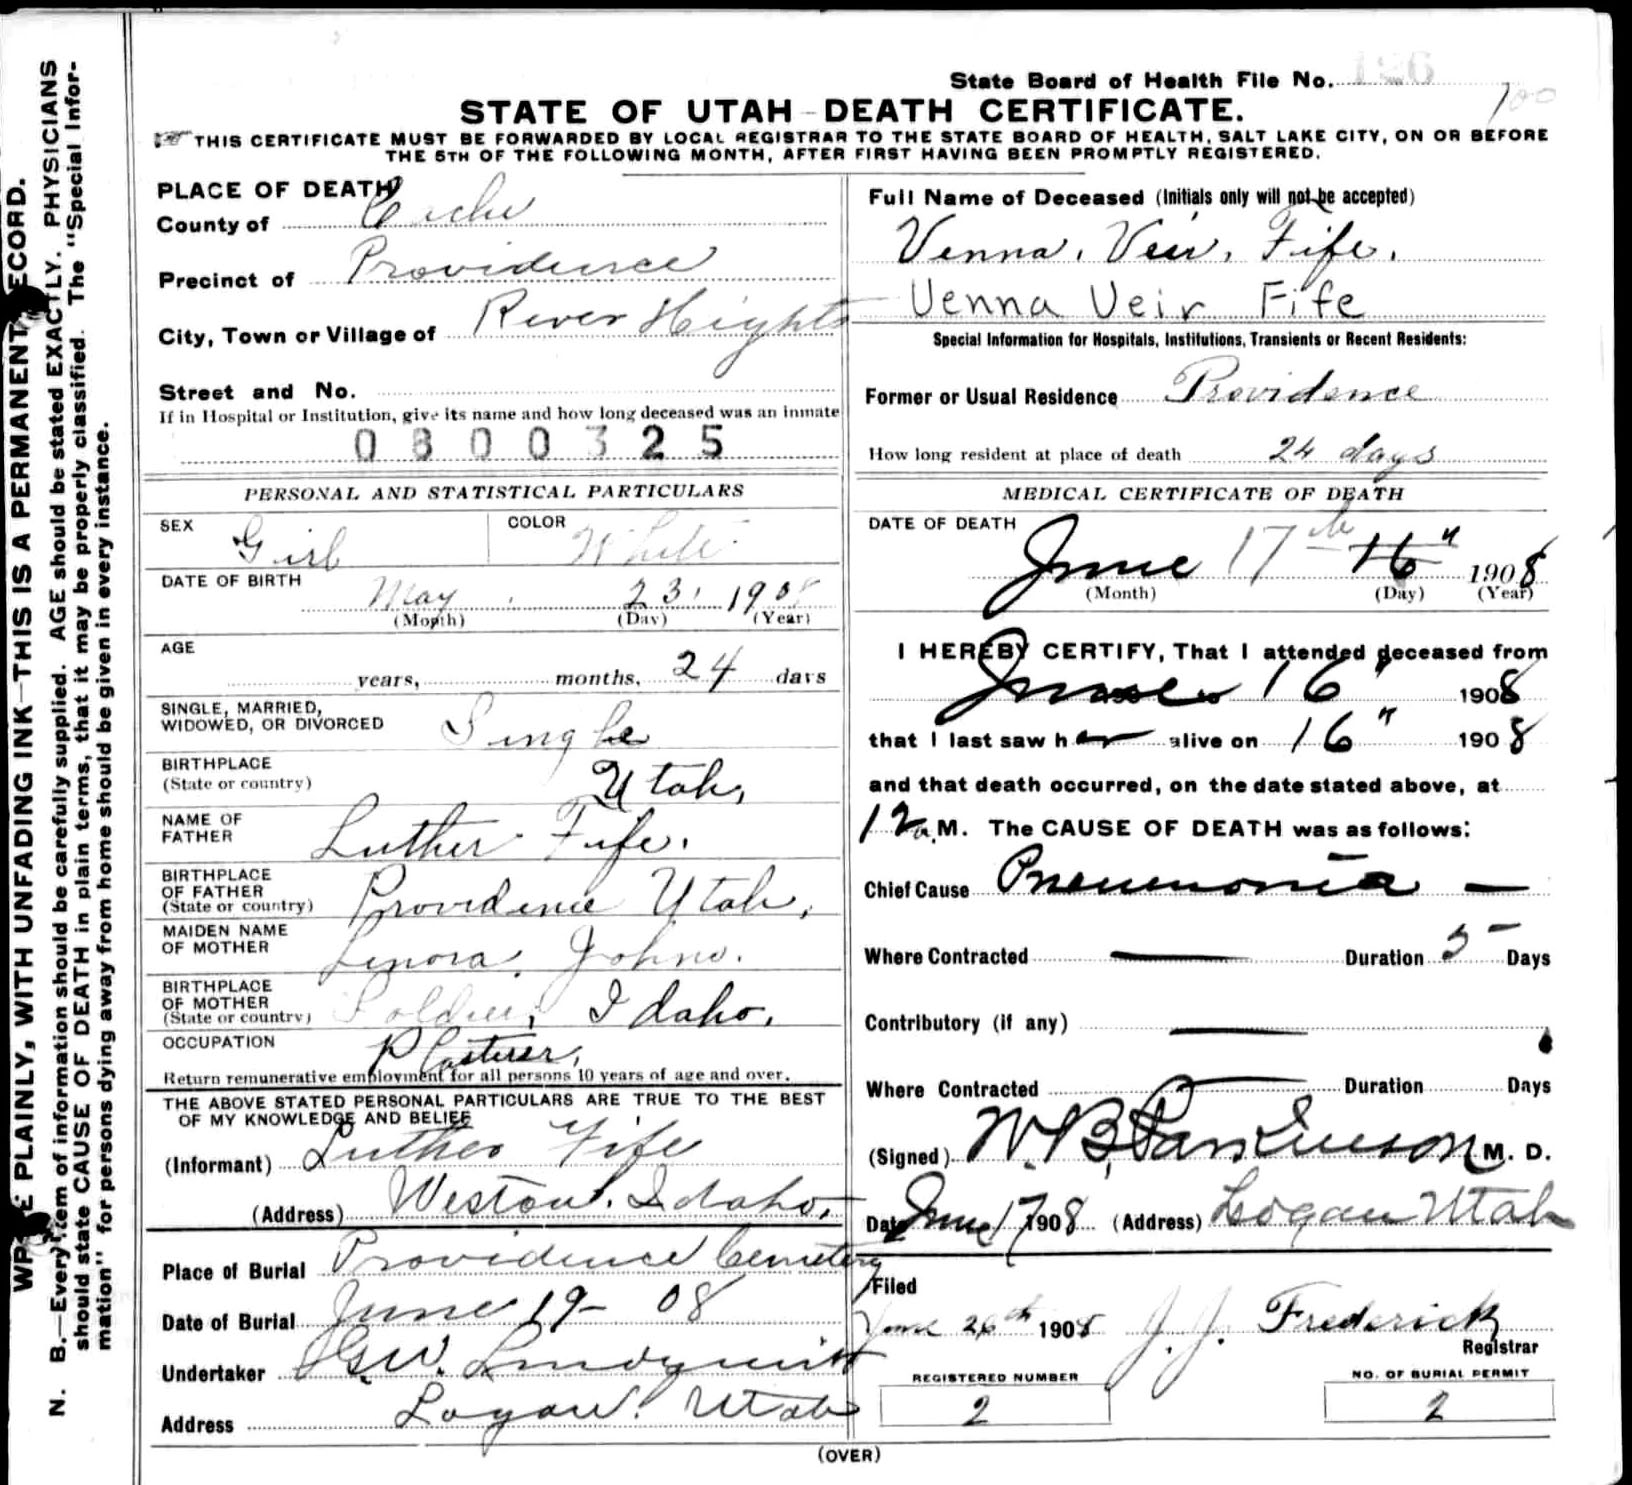 State Board of Health File No. 126
100
STATE OF UTAH - DEATH CERTIFICATE.
THIS CERTIFICATE MUST BE FORWARDED BY LOCAL REGISTRAR TO THE STATE BOARD OF HEALTH, SALT LAKE CITY, ON OR BEFORE
THE 5TH OF THE FOLLOWING MONTH, AFTER FIRST HAVING BEEN PROMPTLY REGISTERED.
WRITE PLAINLY, WITH UNFADING INK—THIS IS A PERMANENT RECORD.
N. B.—Every item of information should be carefully supplied. AGE should be stated EXACTLY. PHYSICIANS
should state CAUSE OF DEATH in plain terms, that it may be properly classified. The "Special Infor-
mation" for persons dying away from home should be given in every instance.
PLACE OF DEATH
County of Cache
Precinct of Providence
City, Town or Village of River Hights
Street and No.
If in Hospital or Institution, give its name and how long deceased was an inmate
0800325
PERSONAL AND STATISTICAL PARTICULARS
SEX Girl COLOR White
DATE OF BIRTH May 23, 1908
(Month) (Day) (Year)
AGE
years, months, 24 days
SINGLE, MARRIED,
WIDOWED, OR DIVORCED Single
BIRTHPLACE
(State or country) Utah,
NAME OF
FATHER Luther Fife.
BIRTHPLACE
OF FATHER
(State or country) Providence Utah,
MAIDEN NAME
OF MOTHER Lenora Johns.
BIRTHPLACE
OF MOTHER
(State or country) Soldier, Idaho,
OCCUPATION Plasterer,
Return remunerative employment for all persons 10 years of age and over.
THE ABOVE STATED PERSONAL PARTICULARS ARE TRUE TO THE BEST
OF MY KNOWLEDGE AND BELIEF
(Informant) Luther Fife
(Address) Weston, Idaho,
Place of Burial Providence Cemetery
Date of Burial June 19 - 08
Undertaker G.W. Lindquist
Address Logan, Utah
Full Name of Deceased (Initials only will not be accepted)
Venna, Veir, Fife.
Venna Veir Fife
Special Information for Hospitals, Institutions, Transients or Recent Residents:
Former or Usual Residence Providence
How long resident at place of death 24 days
MEDICAL CERTIFICATE OF DEATH
DATE OF DEATH
June 17th 16" 1908
(Month) (Day) (Year)
I HEREBY CERTIFY, That I attended deceased from
June 16" 1908
that I last saw her alive on 16" 1908
and that death occurred, on the date stated above, at
12 a. M. The CAUSE OF DEATH was as follows:
Chief Cause Pneumonia —
Where Contracted — Duration 5 Days
Contributory (if any) —
Where Contracted — Duration Days
(Signed) W. B. Parkinson M. D.
Date June 17 1908 (Address) Logan Utah
Filed
June 26th 1908 J. J. Frederick
Registrar
REGISTERED NUMBER
2
NO. OF BURIAL PERMIT
2
(OVER)